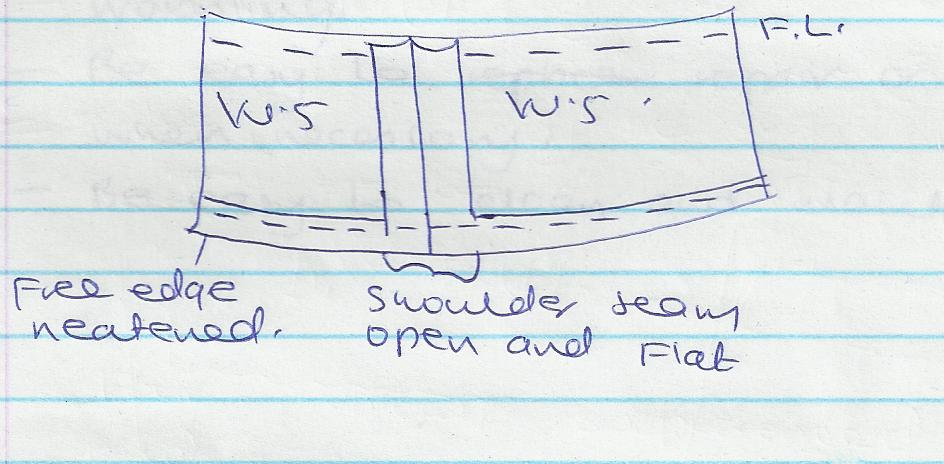 F.L.
W.S
W.S.
Free edge
neatened.
Shoulder seam
open and Flat